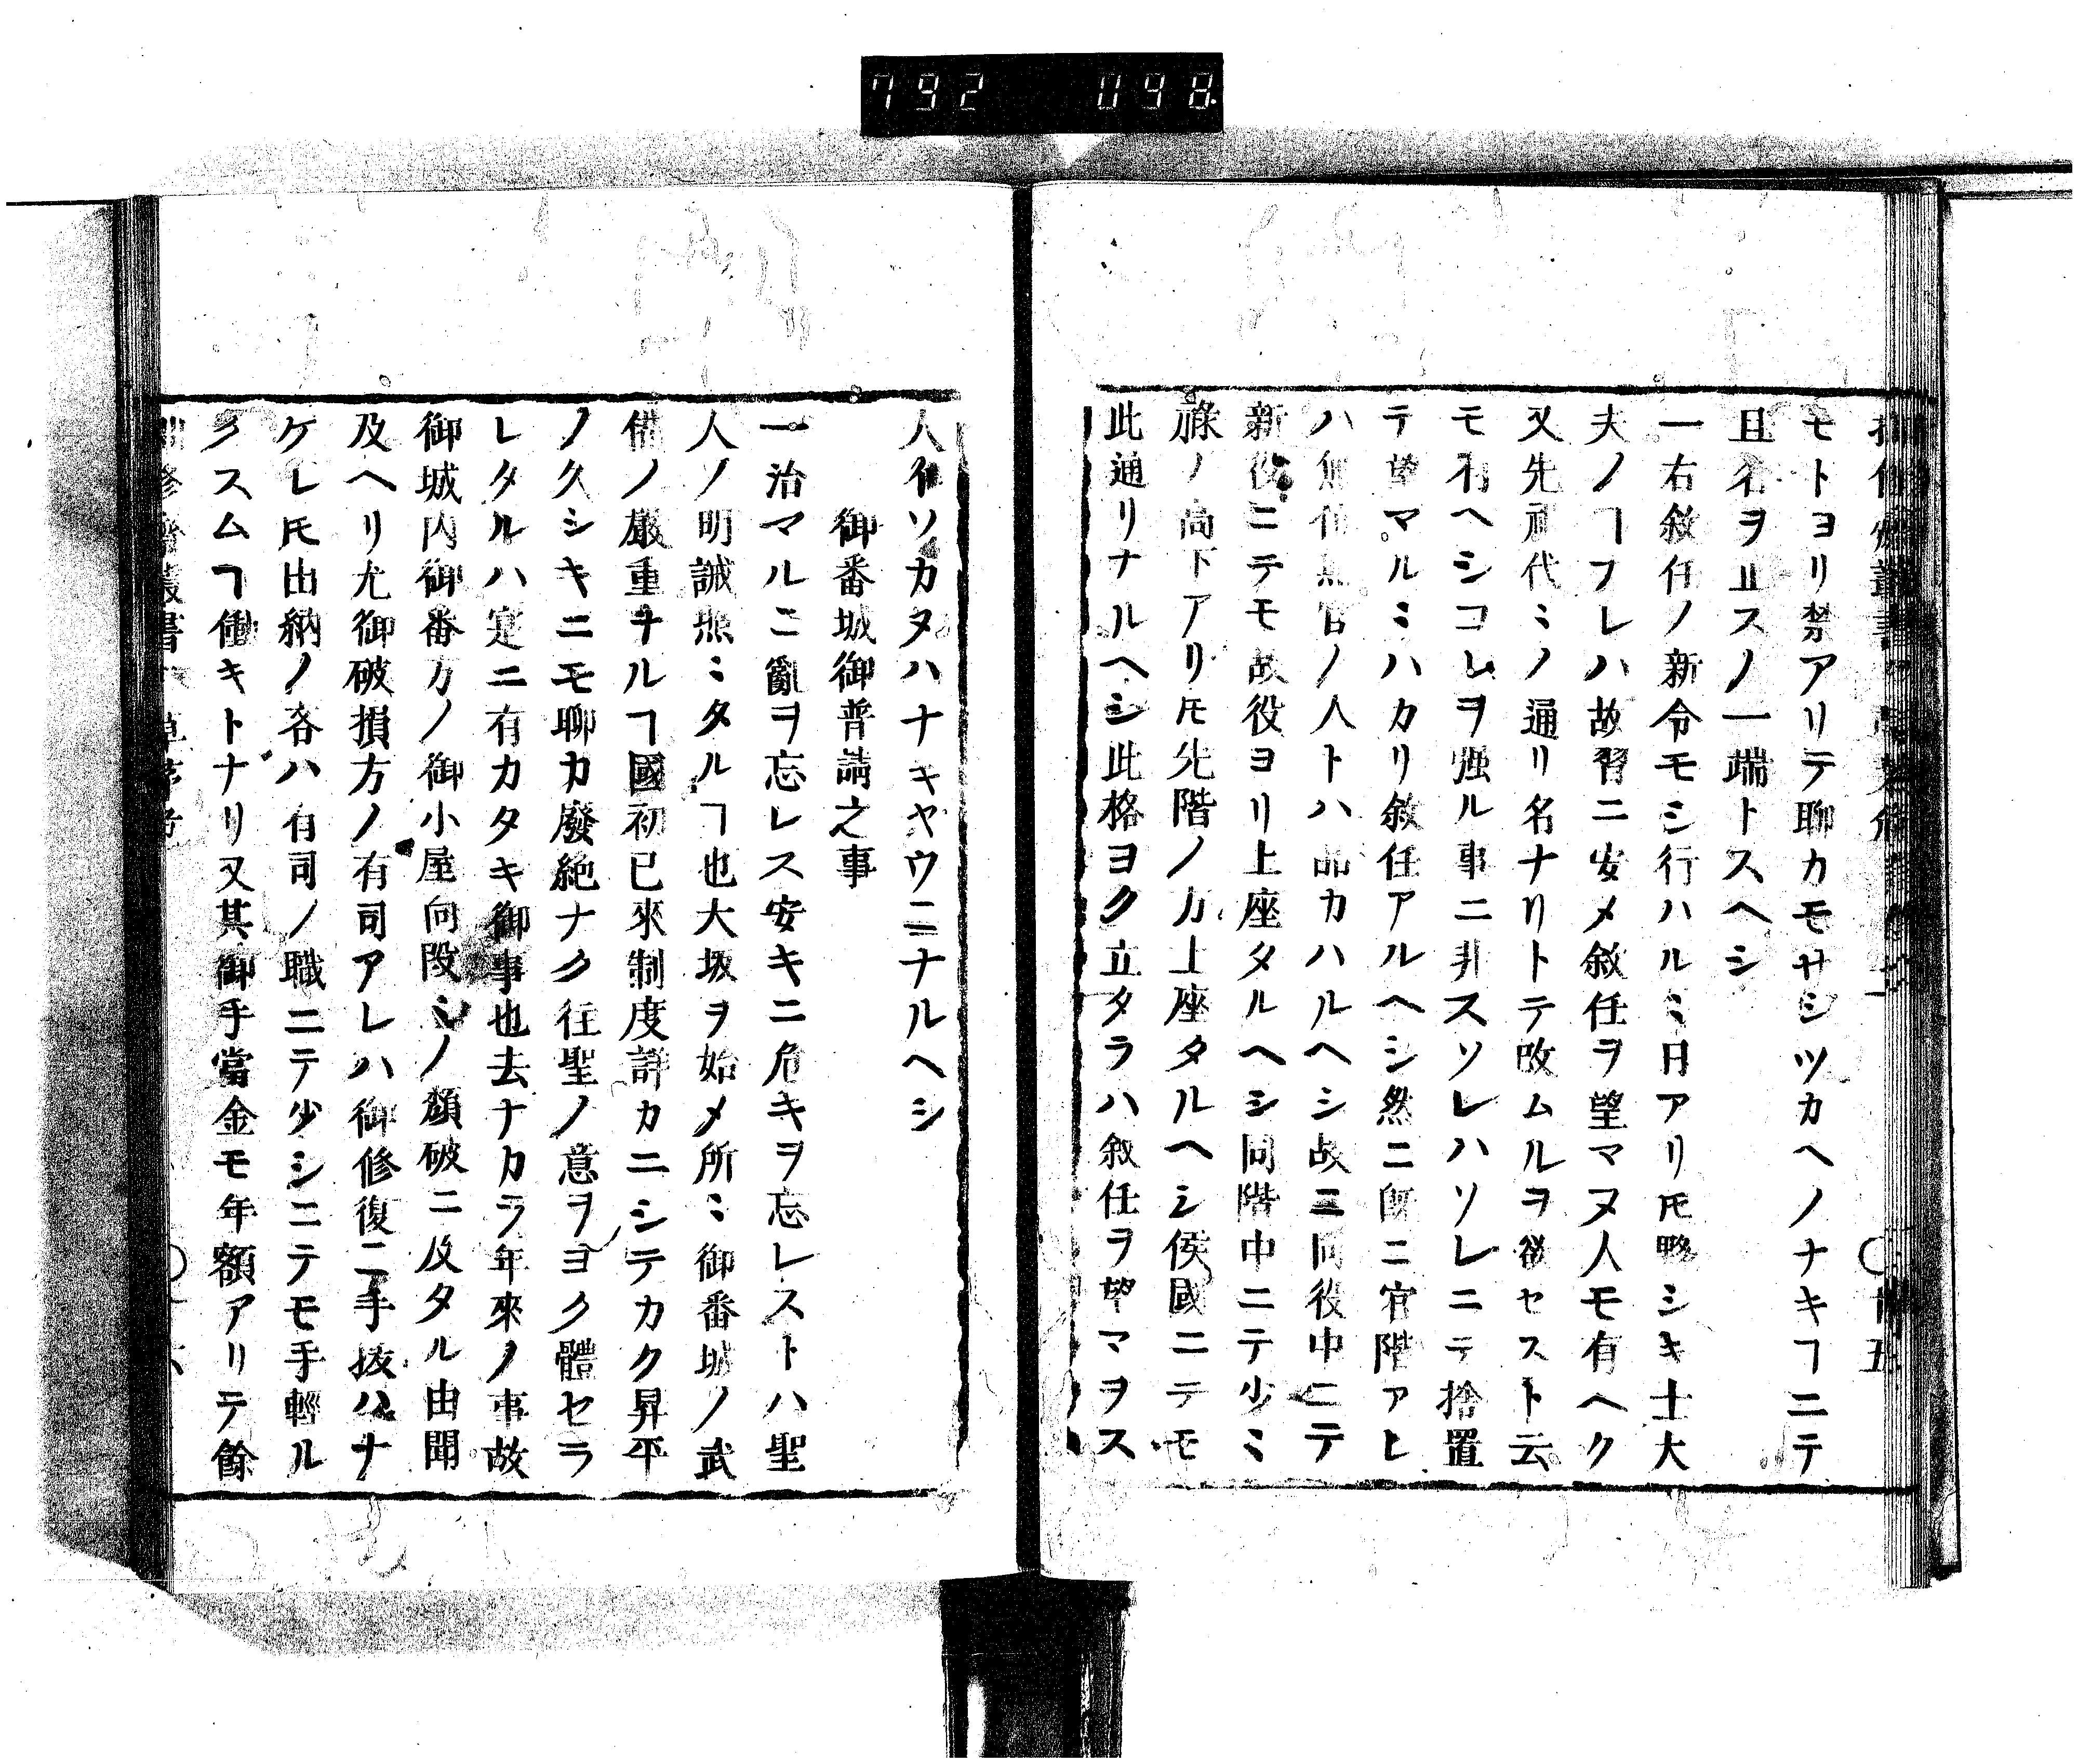 792 098
モトヨリ禁アリテ聊カモサシツカヘノナキヿニテ
且名ヲ正スノ一端トスヘシ
一右敘任ノ新令モシ行ハルミ日アリ𪜈略シキ士大
夫ノヿフレハ故習ニ安メ敘任ヲ望マヌ人モ有ヘク
又先祖代ミノ通リ名ナリトテ改ムルヲ欲セスト云
モ有ヘシコレヲ强ル事ニ非スソレハソレニテ捨置
テ望マルミハカリ敘任アルヘシ然ニ既ニ官階アレ
ハ無位無官ノ人トハ品カハルヘシ故ニ同役中ニテ
新役ニテモ故役ヨリ上座タルヘシ同階中ニテ少ミ
祿ノ高下アリ𪜈先階ノ力上座タルヘシ侯國ニテモ
此通リナルヘシ此格ヨク立タラハ敘任ヲ望マヲス
人イソカタハナキヤウニナルヘシ
御番城御普請之事
一治マルニ亂ヲ忘レス安キニ危キヲ忘レストハ聖
人ソ明誡照ミタルヿ也大坂ヲ始メ所ミ御番城ノ武
備ノ嚴重ナルヿ國初已來制度詳カニシテカク昇平
ノ久シキニモ聊カ廢絶ナク往聖ノ意ヲヨク體セラ
レタルハ寔ニ有カタキ御事也去ナカラ年來ノ事故
御城内御番方ノ御小屋向段ミノ頽破ニ及タル由聞
及ヘリ尤御破損方ノ有司アレハ御修復ニ手抜ハナ
ケレ𪜈出納ノ吝ハ有司ノ職ニテ少シニテモ手輕ル
クスムヿ働キトナリ又其御手當金モ年額アリテ餘